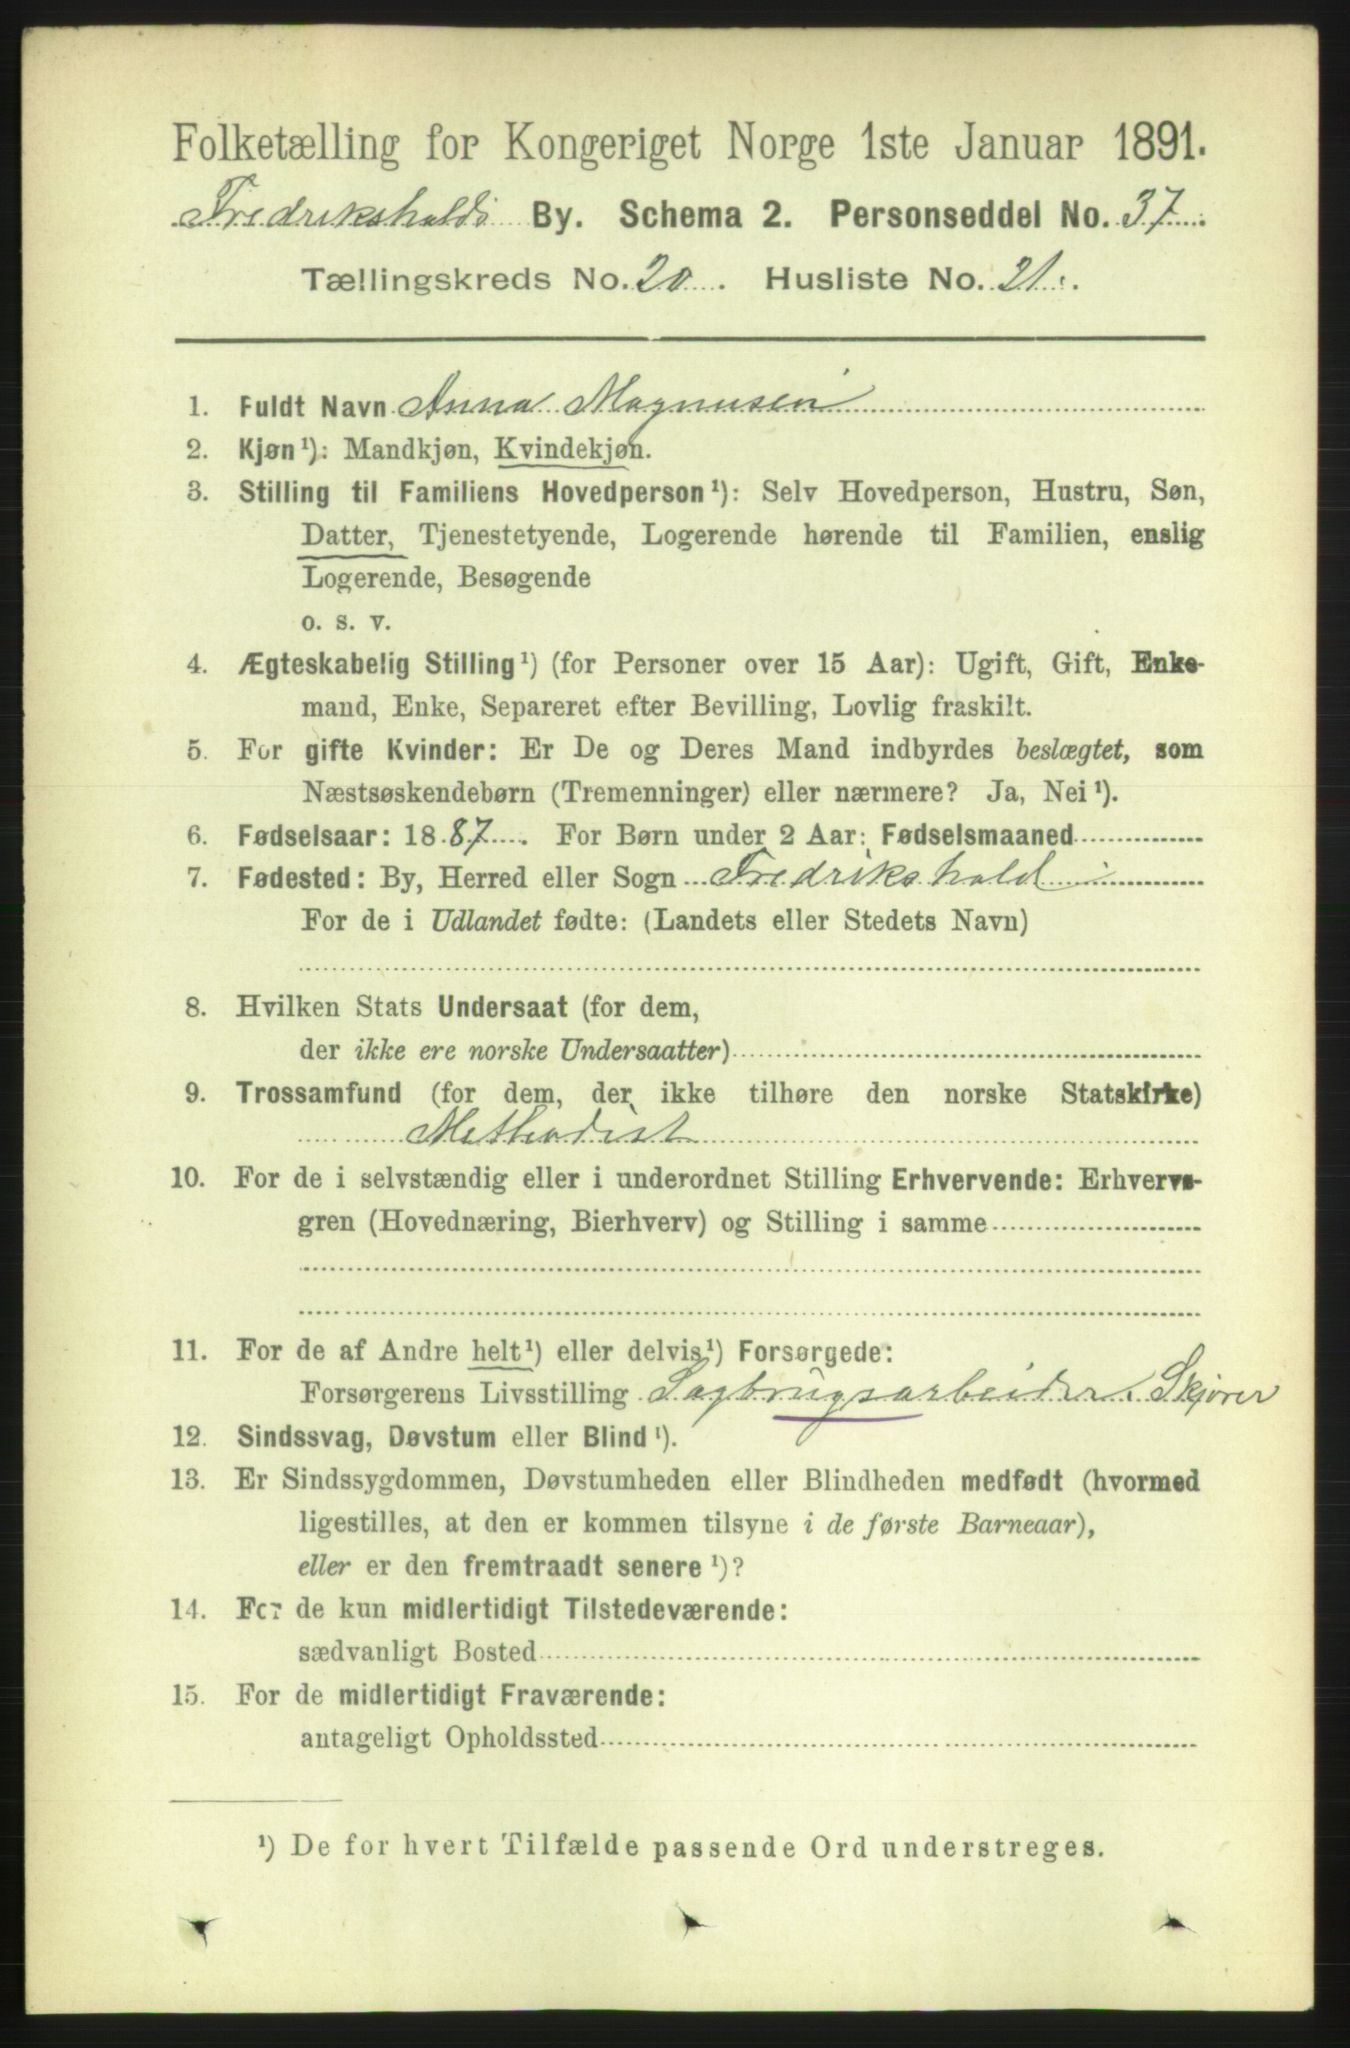 Folketælling for Kongeriget Norge 1ste Januar 1891.
Fredrikshalds By. Schema 2. Personseddel No. 37
Tællingskreds No. 20. Husliste No. 21.
1. Fuldt Navn Anna Magnusen
2. Kjøn¹): Mandkjøn, Kvindekjøn.
3. Stilling til Familiens Hovedperson¹): Selv Hovedperson, Hustru, Søn,
Datter, Tjenestetyende, Logerende hørende til Familien, enslig
Logerende, Besøgende
o. s. v.
4. Ægteskabelig Stilling¹) (for Personer over 15 Aar): Ugift, Gift, Enke-
mand, Enke, Separeret efter Bevilling, Lovlig fraskilt.
5. For gifte Kvinder: Er De og Deres Mand indbyrdes beslægtet, som
Næstsøskendebørn (Tremenninger) eller nærmere? Ja, Nei¹).
6. Fødselsaar: 1887. For Børn under 2 Aar: Fødselsmaaned
7. Fødested: By, Herred eller Sogn Fredrikshald
For de i Udlandet fødte: (Landets eller Stedets Navn)
8. Hvilken Stats Undersaat (for dem,
der ikke ere norske Undersaatter)
9. Trossamfund (for dem, der ikke tilhøre den norske Statskirke)
Methodist
10. For de i selvstændig eller i underordnet Stilling Erhvervende: Erhvervs-
gren (Hovednæring, Bierhverv) og Stilling i samme
11. For de af Andre helt¹) eller delvis¹) Forsørgede:
Forsørgerens Livsstilling Sagbrugsarbeider, Skjører
12. Sindssvag, Døvstum eller Blind¹).
13. Er Sindssygdommen, Døvstumheden eller Blindheden medfødt (hvormed
ligestilles, at den er kommen tilsyne i de første Barneaar),
eller er den fremtraadt senere¹)?
14. For de kun midlertidigt Tilstedeværende:
sædvanligt Bosted
15. For de midlertidigt Fraværende:
antageligt Opholdssted
¹) De for hvert Tilfælde passende Ord understreges.